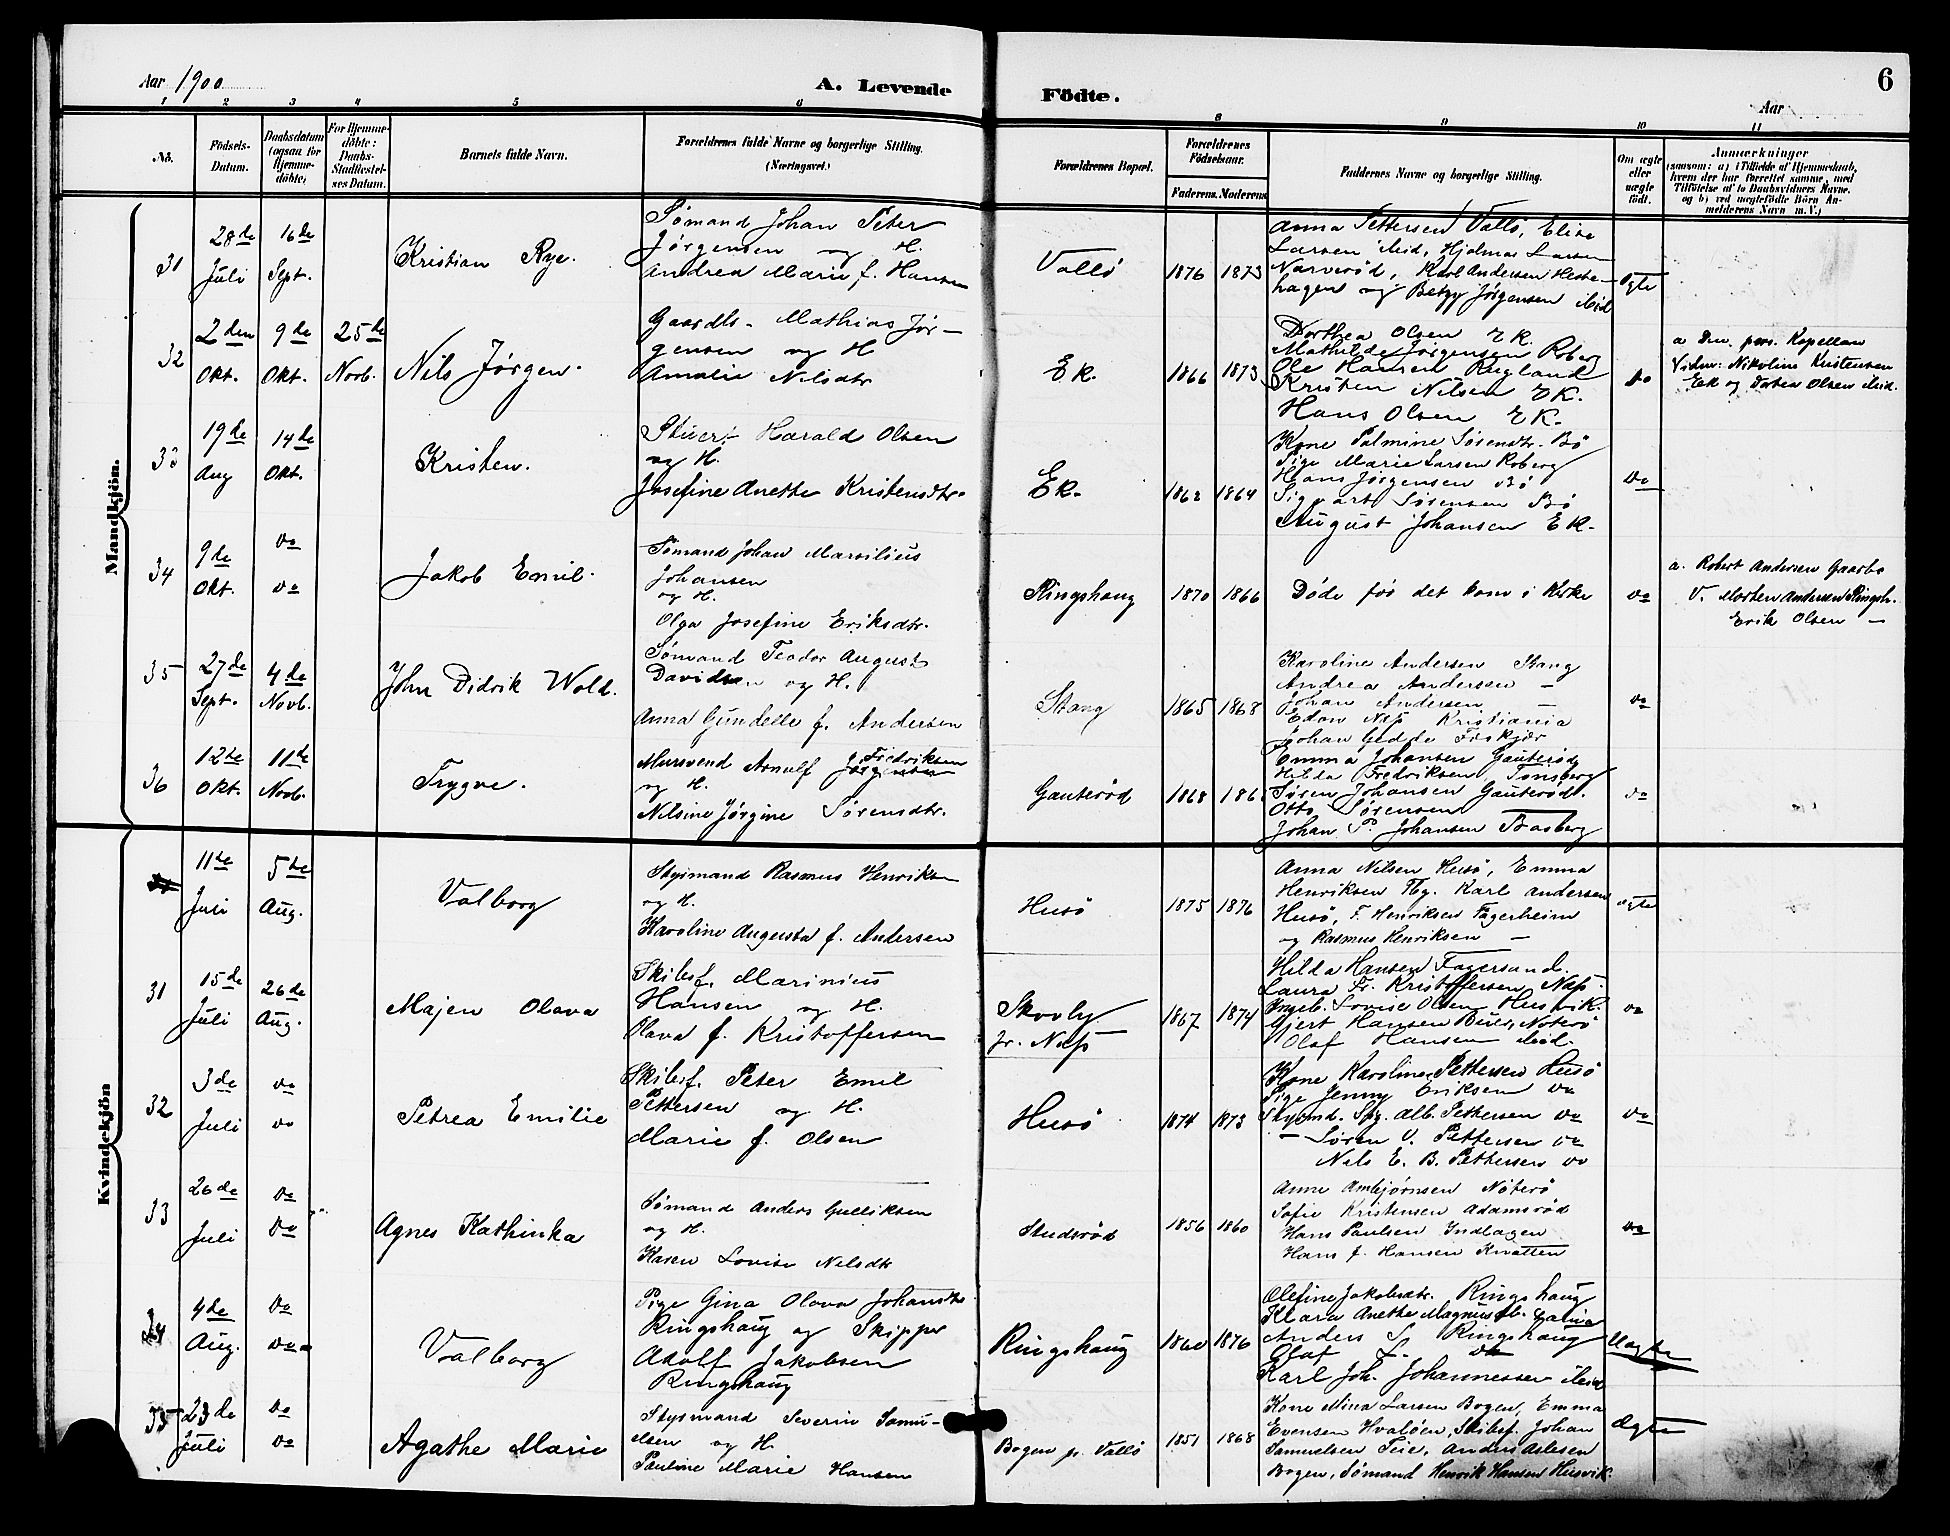 Aar 1900
A. Levende
Födte.
6
Aar
1 2 3 4 5 6
8 9 10 11
No.
Födsels-Datum.
Daabsdatum (ogsaa for Hjemme-döbte)
For Hjemme-döbte: Daabs-Stadfæstel-ses Datum.
Barnets fulde Navn.
Forældrenes fulde Navne og borgerlige Stilling. (Næringsvei.)
Forældrenes Bopæl.
Forældrenes Födselsaar.
Faderens. Moderens.
Faddernes Navne og borgerlige Stilling.
Om ægte eller uægte födt.
Anmærkninger
(saasom: a) i Tilfælde af Hjemmedaab, hvem der har forrettet samme, med Tilföielse af to Daabsvidners Navne, og b) ved uægtefödte Börn An-melderens Navn m. V.)
Mandkjön.
31
28de Juli
16de Sept.
Kristian Rye.
Sømand Johan Peter
Jørgensen og H.
Andrea Marie f. Hansen
Vallö
1876 1873
Anna Pettersen Vallö, Elise
Larsen ibid, Hjalmar Larsen
Narverød, Karl Andersen Heste-
hagen og Betzy Jørgensen ibid
Ægte
32
2den Okt.
9de Okt.
25de Novb.
Nils Jørgen.
Gaardbr. Mathias Jør-
gensen og H
Amalie Nilsdtr
Ek.
1866 1873
Dorthea Olsen Ek.
Mathilde Jørgensen Roberg
Ole Hansen Rugland
Kristen Nilsen Ek.
Hans Olsen Ek.
do
a Den pers. Kapellan
Vidner: Nikoline Kristensen
Ek og Dortea Olsen ibid.
33
19de Aug
14de Okt.
Kristen.
Stuert Harald Olsen
og H.
Josefine Anette Kristensdtr.
Ek.
1862 1864
Kone Palmine Sørensdtr. Bö
Pige Marie Larsen Roberg
Hans Jørgensen Bö
Sigvart Sørensen Bö
August Johansen Ek.
do
34
9de Okt.
do do
Jakob Emil.
Sømand Johan Marsilius
Johansen
og H.
Olga Josefine Eriksdtr.
Ringshaug
1870 1866
Døde før det kom i Kirke
do
a. Robert Andersen Gaarbo
V. Morten Andersen Ringsh.
Erik Olsen —
35
27de Sept.
4de Novb.
John Didrik Wold.
Sømand Teodor August
Davidsen og H.
Anna Gundelle f. Andersen
Stang
1865 1868
Karoline Andersen Stang
Andrea Andersen —
Johan Andersen —
Edon Næss Kristiania
Johan Gedde Fiskjær
do
36
12te Okt.
11te Novb.
Trygve.
Mursvend Arnulf Fredriksen
og H.
Nilsine Jørgine Sørensdtr.
Gauterød
1868 186
Emma Johansen Gauterød
Hilda Fredriksen, Tønsberg
Søren Johansen Gauterød.
Otto Sørensen
Johan P. Johansen Basberg
do
Kvindekjön
11te Juli
5te Aug.
Valborg
Styrmand Rasmus Henriksen
og H.
Karoline Augusta f. Andersen
Husö
1875 1876
Anna Nilsen Husö, Emma
Henriksen Tbg. Karl Andersen
Husö, F. Henriksen Fagerheim
og Rasmus Henriksen —
ægte
31
15de Juli
26de Aug.
Majen Olava
Skibsf. Marinius
Hansen og H.
Olava f. Kristoffersen
Skovly
pr. Næss
1867 1874
Hilda Hansen Fagersand.
Laura Fr. Kristoffersen Næss.
Ingeb. Lovise Olsen Husvik.
Gjert Hansen Buer, Nøterö
Olaf Hansen ibid.
do
32
3de Juli
do do
Petrea Emilie
Skibsf. Peter Emil
Pettersen og H.
Marie f. Olsen
Husö
1874 1873
Kone Karoline Pettersen Husö
Pige Jenny Eriksen do
Styrmd. Sig. Alb. Pettersen do
— Søren V. Pettersen do
Nils E. B. Pettersen do
do
33
26de Juli
do do
Agnes Kathinka
Sømand Anders Gulliksen
og H.
Karen Lovise Nilsdtr
Studerød
1856 1860
Anne Ambjørnsen Nöterö
Sofie Kristensen Adamsröd
Hans Paulsen Indlagen
Hans f. Hansen Knatten
do
34
4de Aug.
do do
Valborg
Pige Gina Olava Johansdtr.
Ringshaug og Skipper
Adolf Jakobsen
Ringshaug
Ringshaug
1860 1876
Olefine Jakobsdtr. Ringshaug
Klara Anethe Magnusdtr.
Anders S. Ringshaug
Olaf L. do
Karl Joh. Johannessen ibid
Uægte
35
23de Juli
do do
Agathe Marie
Styrmand Severin Samu-
elsen og H.
Pauline Marie Hansen
Bogen p. Vallö
1851 1868
Kone Mina Larsen Bogen, Emma
Evensen Hvalöen, Skibsf. Johan
Samuelsen Teie, Anders Aslesen
Bogen, Sømand Henrik Hansen Husvik.
Ægte